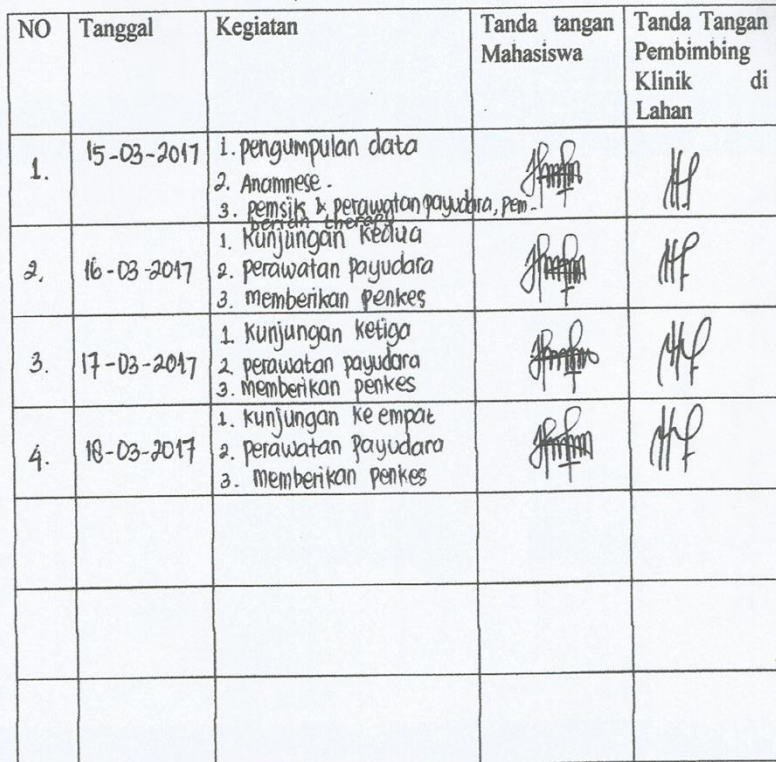 NO Tanggal Kegiatan Tanda tangan Mahasiswa Tanda Tangan Pembimbing Klinik di Lahan
1. 15-03-2017 1. pengumpulan data
2. Anamnese.
3. pemsik & perawatan payudara, pem-
berian therapy
2. 16-03-2017 1. Kunjungan kedua
2. perawatan payudara
3. memberikan penkes
3. 17-03-2017 1. Kunjungan ketiga
2. perawatan payudara
3. memberikan penkes
4. 18-03-2017 1. kunjungan ke empat
2. perawatan payudara
3. memberikan penkes